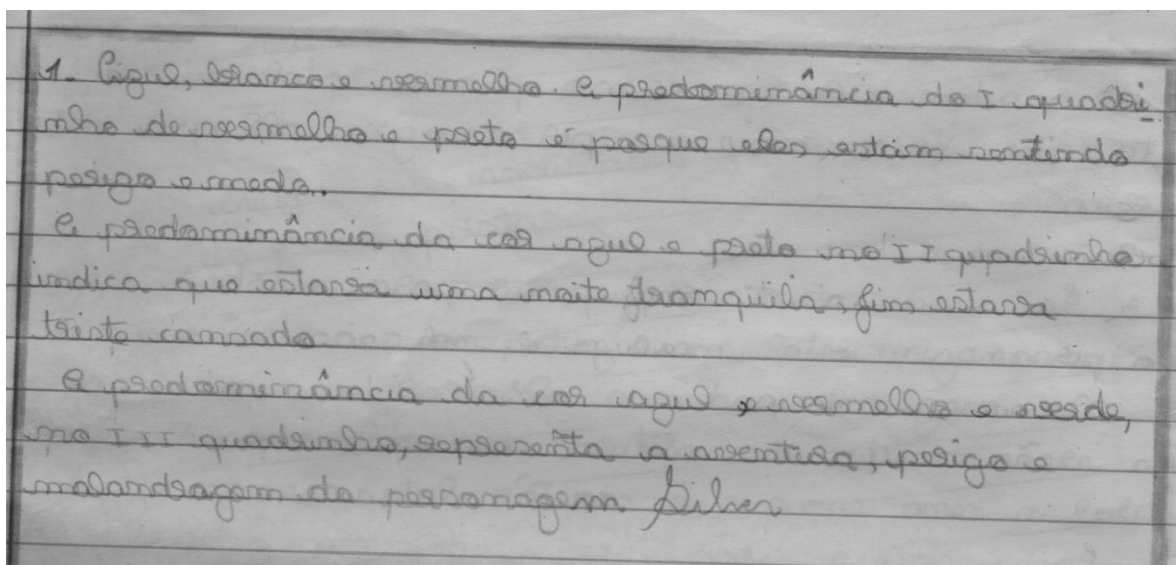 1- Azul, branco e vermelho. A predominância do I quadri
nho de vermelho e preto é porque eles estam sentindo
perigo e medo.
A predominância da cor azul e preto no II quadrinho
indica que estava uma noite tranquila, Jim estava
triste cansado
A predominância da cor azul, vermelho e verde,
no III quadrinho, representa a aventura, perigo e
malandragem do personagem Silver